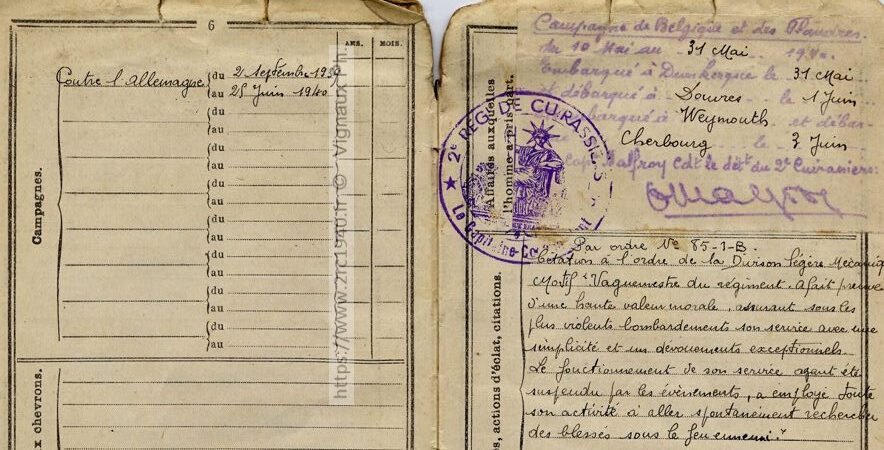 6
ANS. MOIS.
Campagnes.
Contre l'Allemagne du 2 Septembre 1939
au 25 Juin 1940
du
au
du
au
du
au
du
au
du
au
du
au
du
au
x chevrons.
https://www.zrc1940.fr © Vignaux Ph.
Affaires auxquelles
l'homme a pris part.
Campagne de Belgique et des Flandres
du 10 Mai au 31 Mai 19
Embarqué à Dunkerque le 31 Mai
et débarqué à Douvres le 1 Juin
barqué à Weymouth et débar-
Cherbourg le 3 Juin
Cap. Malfroy Cdt le dét du 2e Cuirassiers:
★ 2e REG. DE CUIRASSIERS
Le Capitaine-Co
s, actions d'éclat, citations.
Par ordre No 85-1-B.
Citation à l'ordre de la Divison légère Mecaniq
Motif "Vaguemestre du régiment. A fait preuve
d'une haute valeur morale, assurant sous les
plus violents bombardements son service avec une
simplicité et un dévouements exceptionnels
Le fonctionnement de son service ayant été
suspendu par les évènements, a employé toute
son activité à aller spontanément rechercher
des blessés sous le feu ennemi."